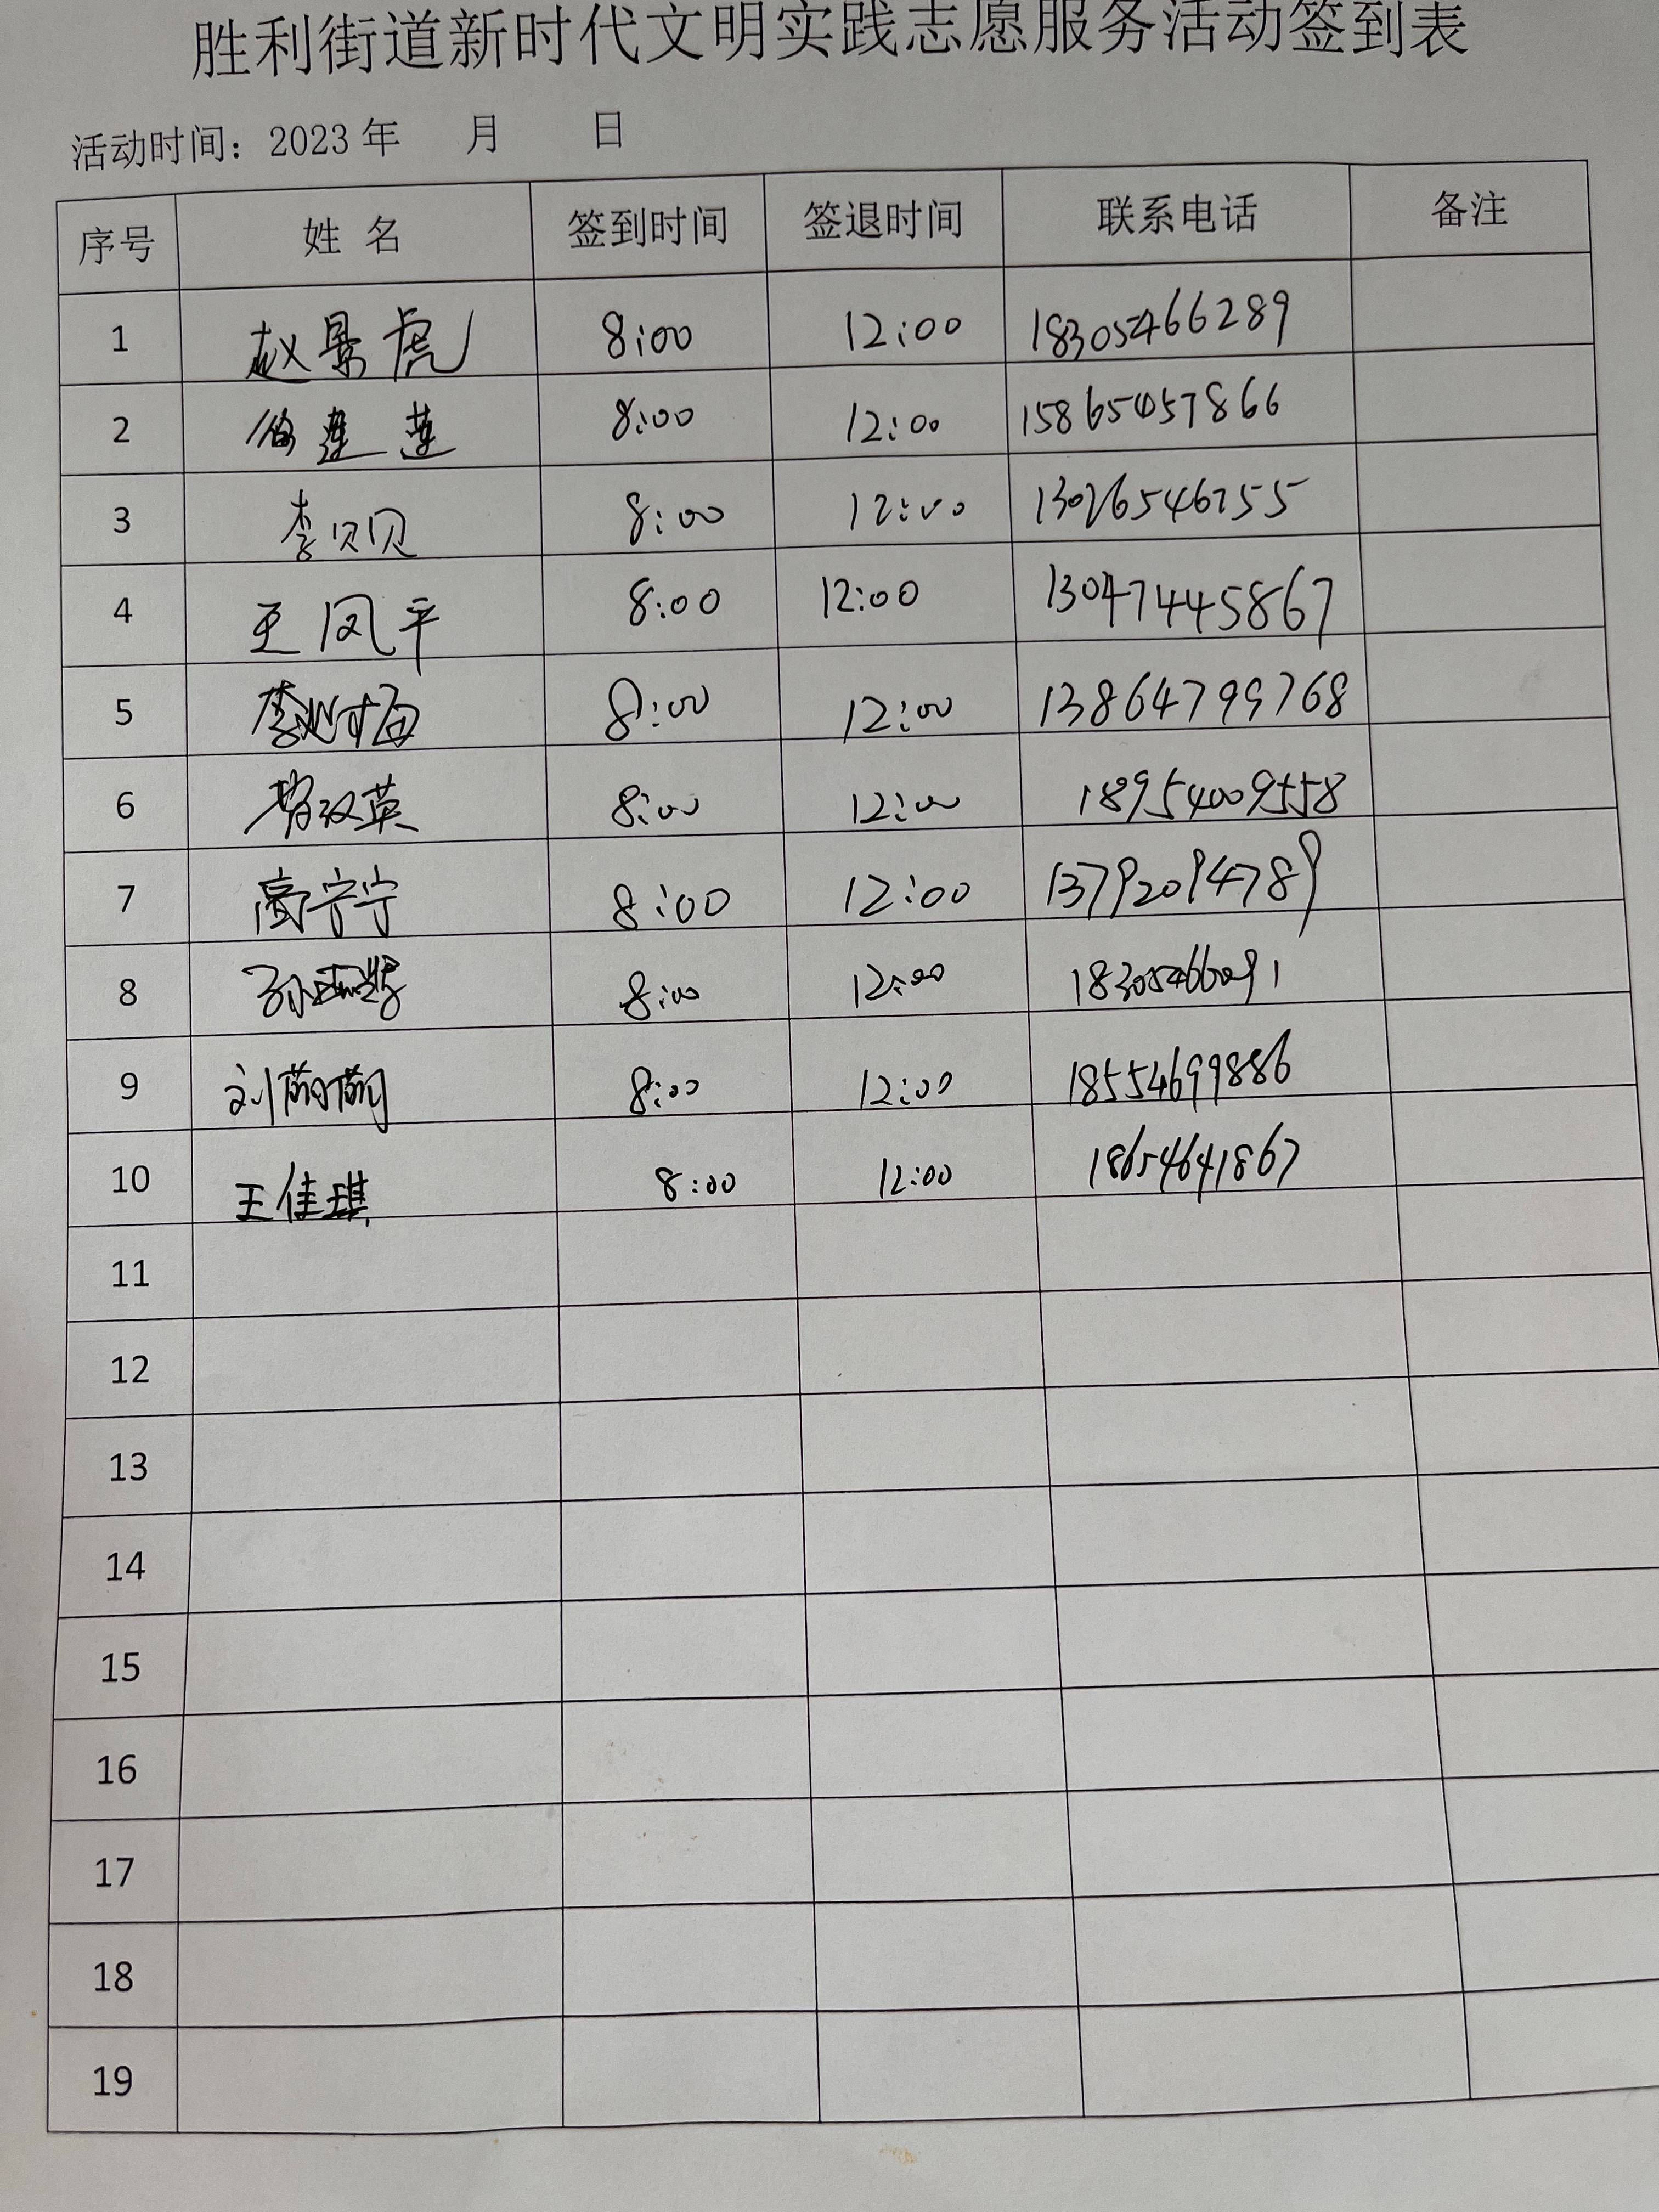 胜利街道新时代文明实践志愿服务活动签到表
活动时间：2023 年 月 日
序号 姓 名 签到时间 签退时间 联系电话 备注
1 赵景虎 8:00 12:00 18305466289
2 8:00 12:00 15865457866
3 李贝贝 8:00 12:00 13026546755
4 王凤平 8:00 12:00 13047445867
5 8:00 12:00 13864799768
6 8:00 12:00 18954009558
7 高宁宁 8:00 12:00 13792094789
8 8:00 12:00 18305466091
9 8:00 12:00 18554699886
10 王佳琪 8:00 12:00 18654641867
11
12
13
14
15
16
17
18
19